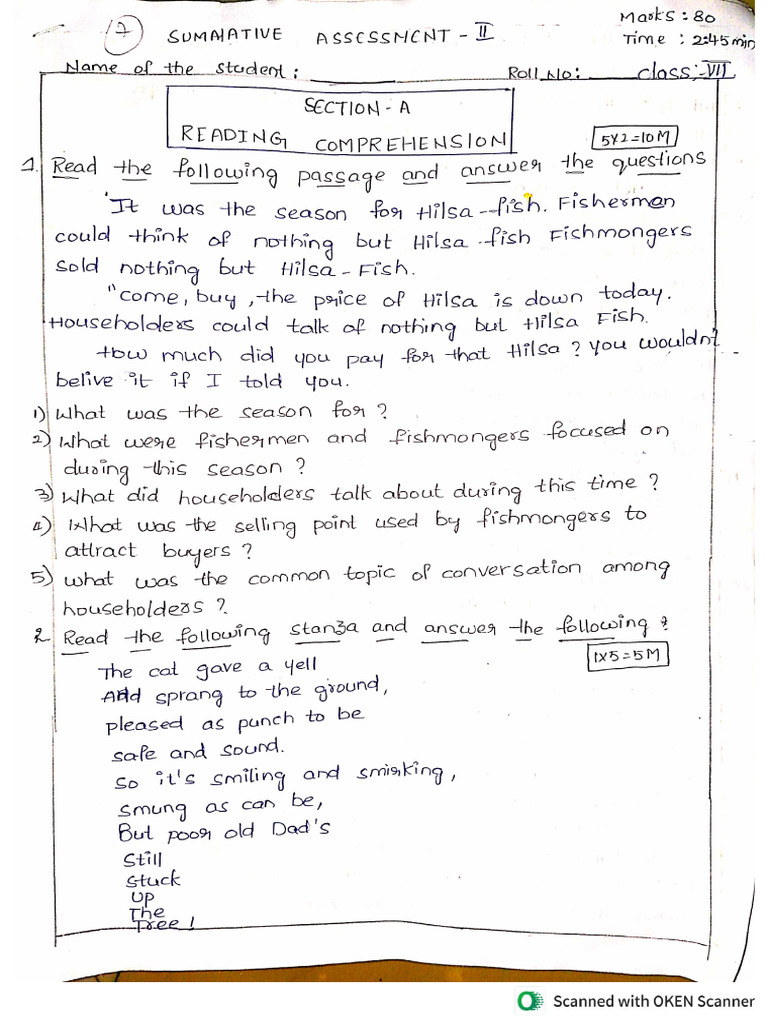 7
SUMMATIVE ASSESSMENT - II
Marks : 80
Time : 2:45 min
Name of the student : Roll No: class:-VII
SECTION - A
READING COMPREHENSION
5X2=10M
1. Read the following passage and answer the questions
"It was the season for Hilsa-fish. Fishermen
could think of nothing but Hilsa-fish Fishmongers
sold nothing but Hilsa-Fish.
"come, buy, the price of Hilsa is down today.
Householders could talk of nothing but Hilsa Fish.
How much did you pay for that Hilsa? you wouldn't
belive it if I told you.
1) What was the season for?
2) What were fishermen and fishmongers focused on
during this season?
3) What did householders talk about during this time?
4) What was the selling point used by fishmongers to
attract buyers?
5) what was the common topic of conversation among
householders?
2. Read the following stanza and answer the following?
1X5=5M
The cat gave a yell
And sprang to the ground,
pleased as punch to be
safe and sound.
So it's smiling and smirking,
smung as can be,
But poor old Dad's
Still
stuck
UP
The
Tree!
Scanned with OKEN Scanner